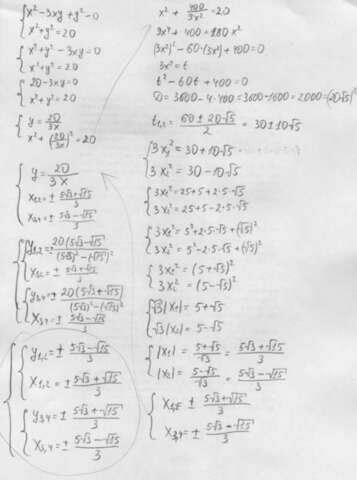 x² - 3xy + y² = 0
x² + y² = 20
x² + y² - 3xy = 0
x² + y² = 20
20 - 3xy = 0
x² + y² = 20
y = 20/3x
x² + (20/3x)² = 20
y = 20/3x
x₁,₂ = ± (5√3 + √15)/3
x₃,₄ = ± (5√3 - √15)/3
y₁,₂ = ± 20(5√3 - √15)/((5√3)² - (√15)²)
x₁,₂ = ± (5√3 + √15)/3
y₃,₄ = ± 20(5√3 + √15)/((5√3)² - (√15)²)
x₃,₄ = ± (5√3 - √15)/3
y₁,₂ = ± (5√3 - √15)/3
x₁,₂ = ± (5√3 + √15)/3
y₃,₄ = ± (5√3 + √15)/3
x₃,₄ = ± (5√3 - √15)/3
x² + 400/9x² = 20
9x⁴ + 400 = 180x²
(3x²)² - 60·(3x²) + 400 = 0
3x² = t
t² - 60t + 400 = 0
D = 3600 - 4·400 = 3600 - 1600 = 2000 = (20√5)²
t₁,₂ = (60 ± 20√5)/2 = 30 ± 10√5
3x₁² = 30 + 10√5
3x₂² = 30 - 10√5
3x₁² = 25 + 5 + 2·5·√5
3x₂² = 25 + 5 - 2·5·√5
3x₁² = 5² + 2·5·√5 + (√5)²
3x₂² = 5² - 2·5·√5 + (√5)²
3x₁² = (5 + √5)²
3x₂² = (5 - √5)²
√3|x₁| = 5 + √5
√3|x₂| = 5 - √5
|x₁| = (5 + √5)/√3 = (5√3 + √15)/3
|x₂| = (5 - √5)/√3 = (5√3 - √15)/3
x₁,₂ = ± (5√3 + √15)/3
x₃,₄ = ± (5√3 - √15)/3